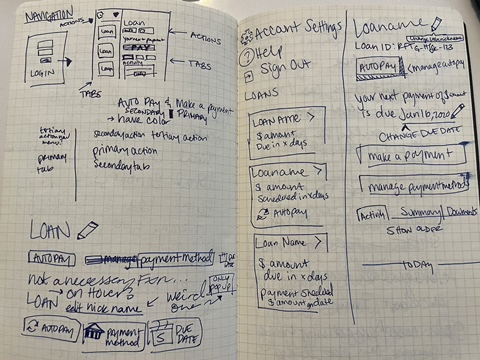 NAVIGATION
ACTIONS
LOGIN
Loan
Loan
Loan
Loan
PAY
Activities
ACTIONS
TABS
TABS
AUTOPAY & Make a payment
SECONDARY PRIMARY
→ have color
tertiary
action
menu
primary
tab
secondary action tertiary action
primary action
secondary tab
LOAN
AUTOPAY
manage payment method
DUE DATE
not a necessary
→ on Hover?
LOAN edit nick name
weird
one
ONLY
POP UP
AUTOPAY
payment
method
5
DUE
DATE
Account Settings
? Help
Sign Out
LOANS
LOAN NAME >
$ amount
Due in x days
Loaname >
$ amount
Scheduled in x days
AUTOPAY
Loan Name >
$ amount
due in x days
payment scheduled
$ amount on date
Loaname
Change nickname
Loan ID:
AUTOPAY
manage autopay
your next payment of $amount
is due Jan 16, 2020
CHANGE DUE DATE
make a payment
manage payment method
Activity Summary Documents
SHOW OLDER
TODAY